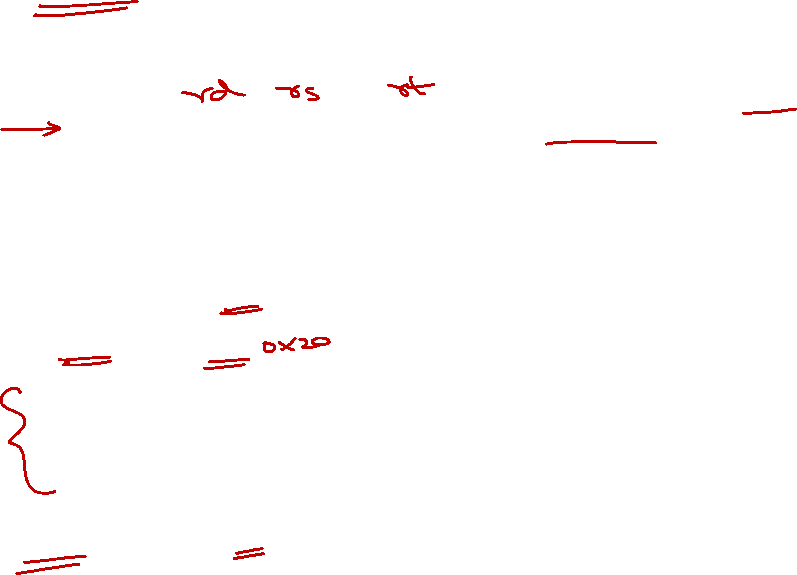 rd rs rt
0x20